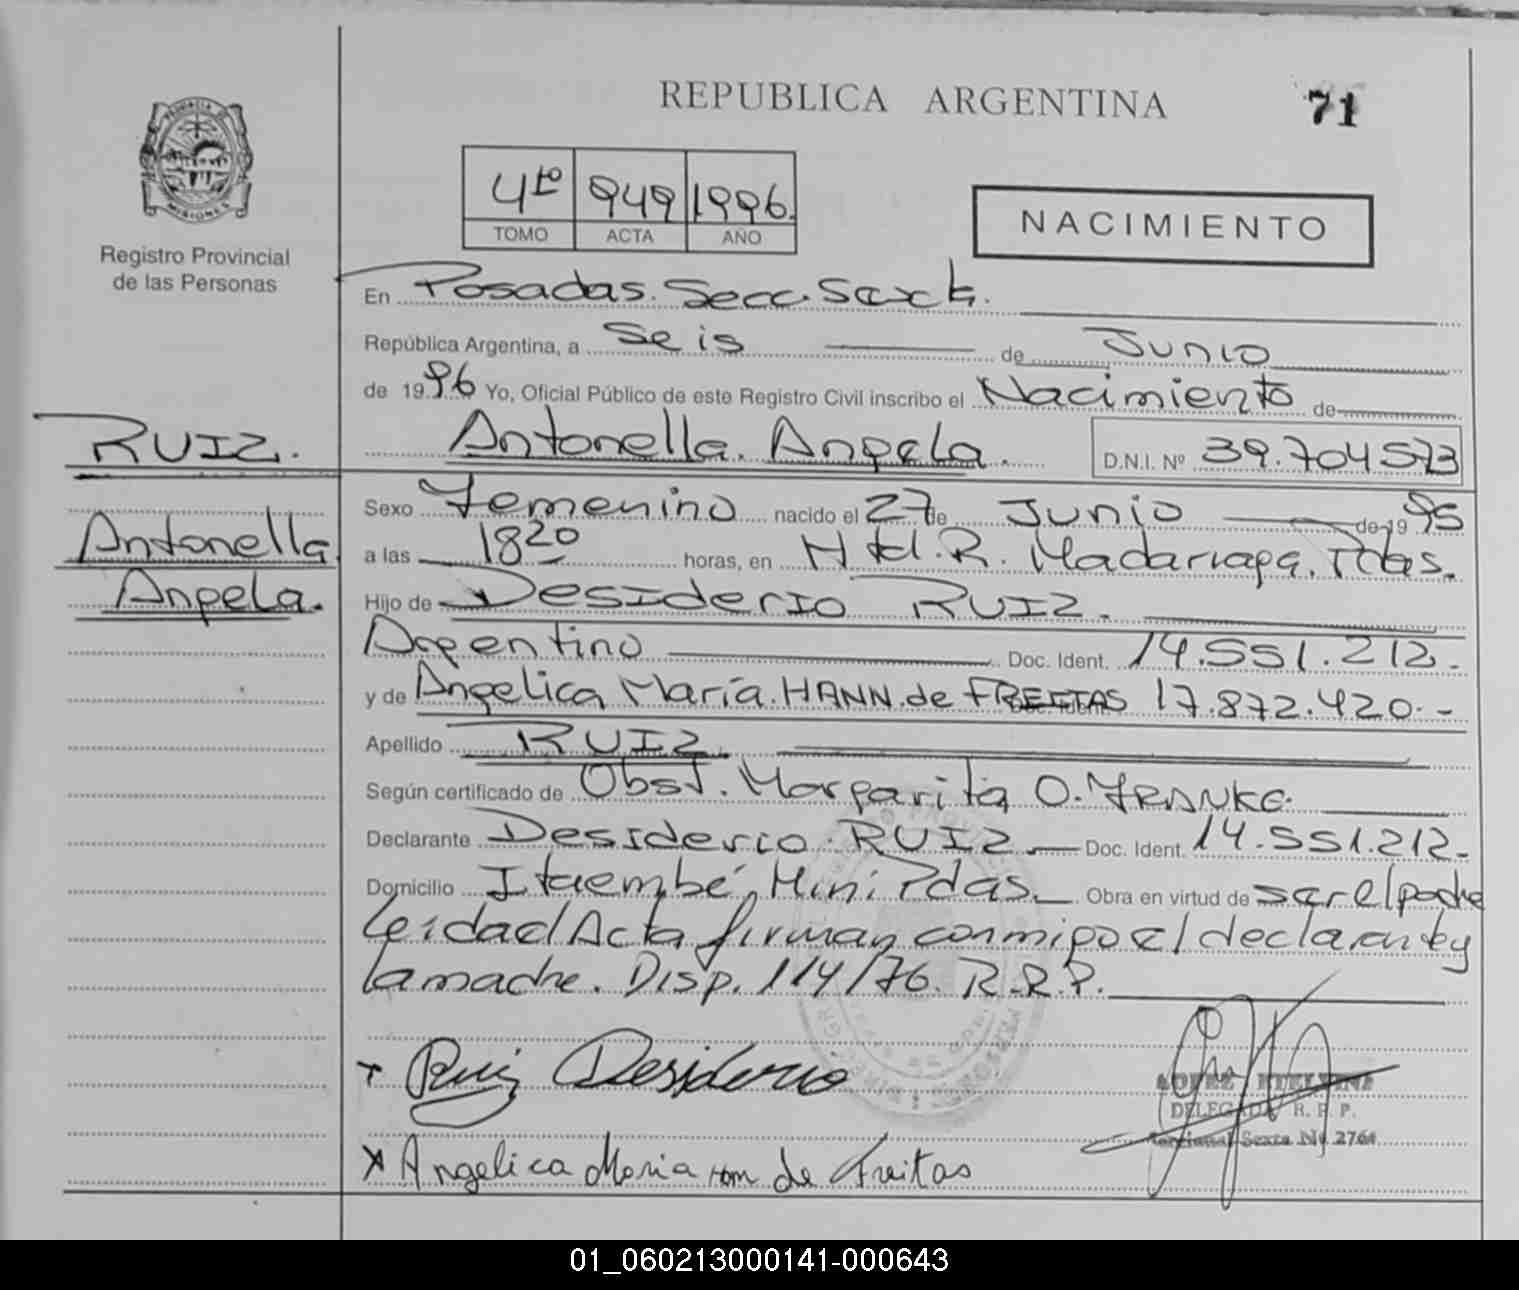 REPUBLICA ARGENTINA
71
PROVINCIA DE
MISIONES
Registro Provincial
de las Personas
4to 949 1996.
TOMO ACTA AÑO
NACIMIENTO
En Posadas. Secc. Sexta.
República Argentina, a Seis de Junio
de 1996 Yo, Oficial Público de este Registro Civil inscribo el Nacimiento de
RUIZ.
Antonella. Angela. D.N.I. Nº 39.704573
Antonella
Angela.
Sexo Femenino nacido el 27 de Junio de 1995
a las 1820 horas, en Htal. R. Madariaga. Pdas.
Hijo de Desiderio RUIZ.
Argentino Doc. Ident. 14.551.212.
y de Angelica María. HANN. de FREITAS 17.872.420.-
Apellido RUIZ
Según certificado de Obst. Margarita O. FRANKE.
Declarante Desiderio RUIZ Doc. Ident. 14.551.212.
Domicilio Itaembé, Mini Pdas. Obra en virtud de ser el padre
leida el Acta firman conmigo el declarante y
la madre. Disp. 114/76. R.R.P.
Ruiz Desiderio
LOPEZ ETELVINA
DELEGADA R. P. P.
Seccional Sexta Nº 2764
x Angelica Maria Han de Freitas
01_060213000141-000643